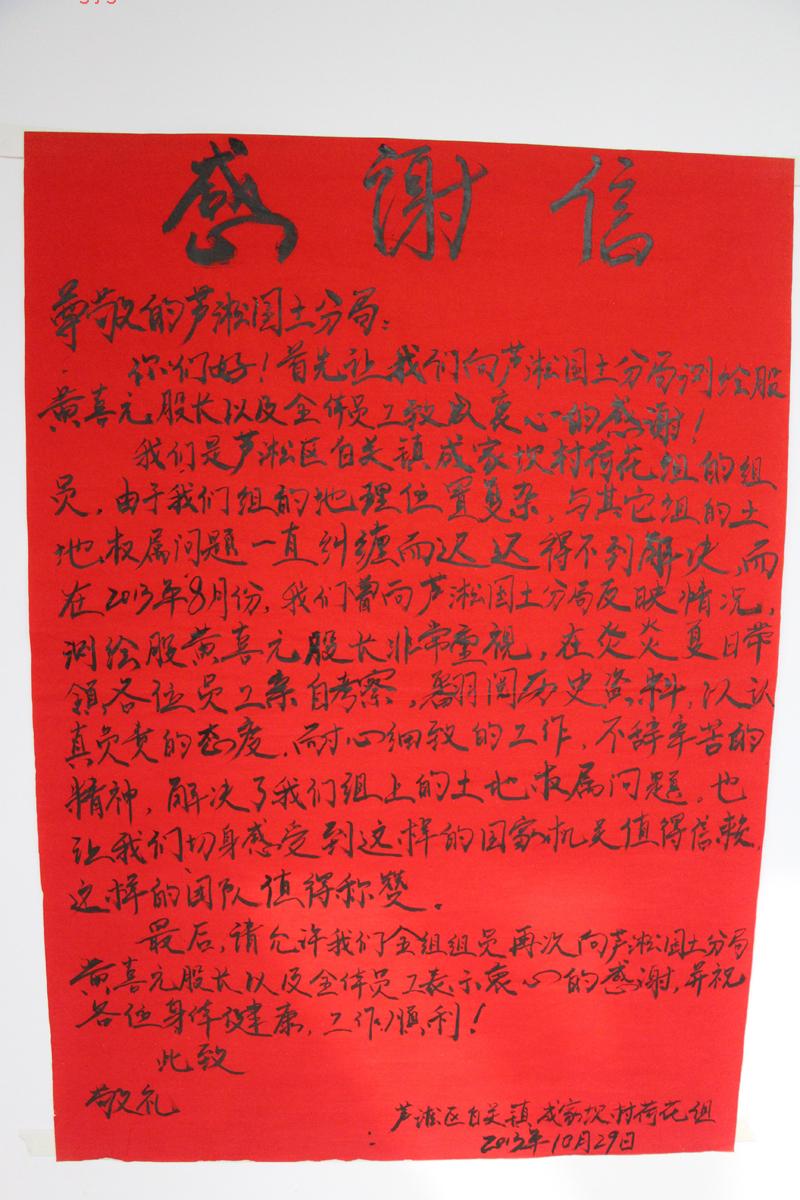 感谢信
尊敬的芦淞国土分局:
你们好!首先让我们向芦淞国土分局测绘股
黄喜元股长以及全体员工致以衷心的感谢!
我们是芦淞区白关镇成家坝村荷花组的组
员,由于我们组的地理位置复杂,与其它组的土
地权属问题一直纠缠而迟迟得不到解决,而
在2013年8月份,我们曾向芦淞国土分局反映情况,
测绘股黄喜元股长非常重视,在炎炎夏日带
领各位员工亲自考察,翻阅历史资料,以认
真负责的态度,耐心细致的工作,不辞辛苦的
精神,解决了我们组上的土地权属问题。也
让我们切身感受到这样的国家机关值得信赖,
这样的团队值得称赞。
最后,请允许我们全组组员再次向芦淞国土分局
黄喜元股长以及全体员工表示衷心的感谢,并祝
各位身体健康,工作顺利!
此致
敬礼
芦淞区白关镇成家坝村荷花组
2013年10月29日